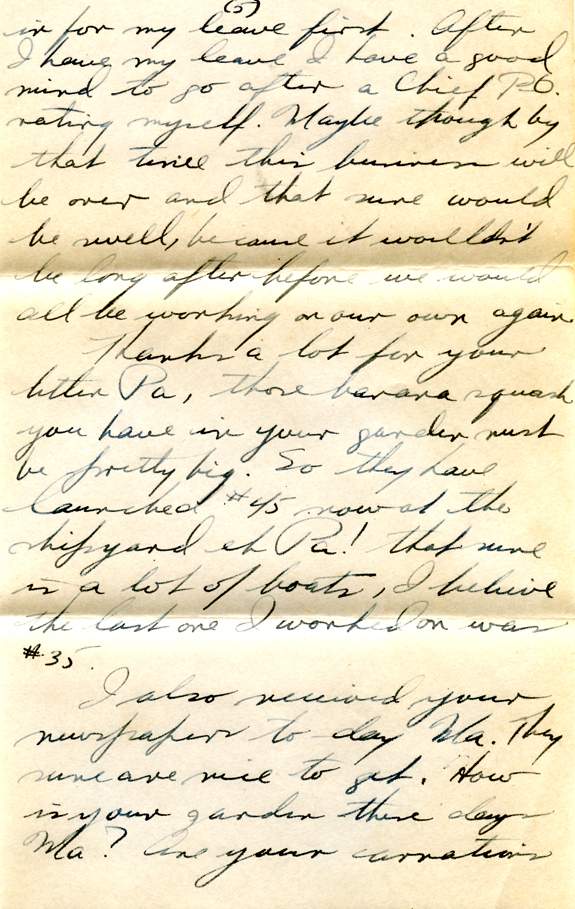 (5)
in for my leave first. After
I have my leave I have a good
mind to go after a Chief P.O.
rating myself. Maybe though by
that time this business will
be over and that sure would
be swell, because it wouldn't
be long after before we would
all be working on our own again.
Thanks a lot for your
letter Pa, those banana squash
you have in your garden must
be pretty big. So they have
launched #45 now at the
shipyard eh Pa! that sure
is a lot of boats, I believe
the last one I worked on was
#35.
I also received your
newspapers to-day Ma. They
sure are nice to get. How
is your garden these days
Ma? Are your carnations